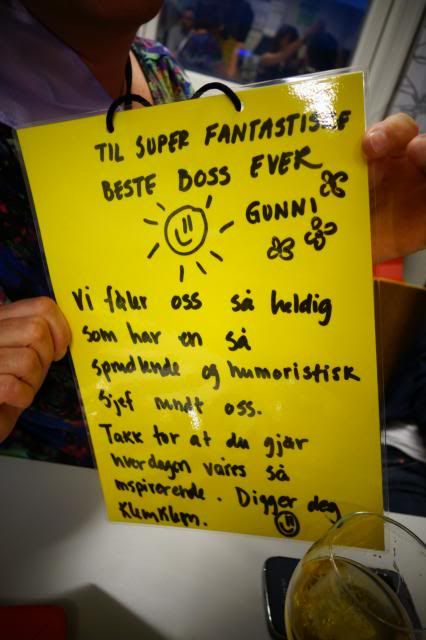 TIL SUPER FANTASTISKE
BESTE BOSS EVER
GUNNI
Vi føler oss så heldig
som har en så
sprudlende og humoristisk
sjef rundt oss.
Takk for at du gjør
hverdagen våres så
inspirerende. Digger deg
KlemKlem.